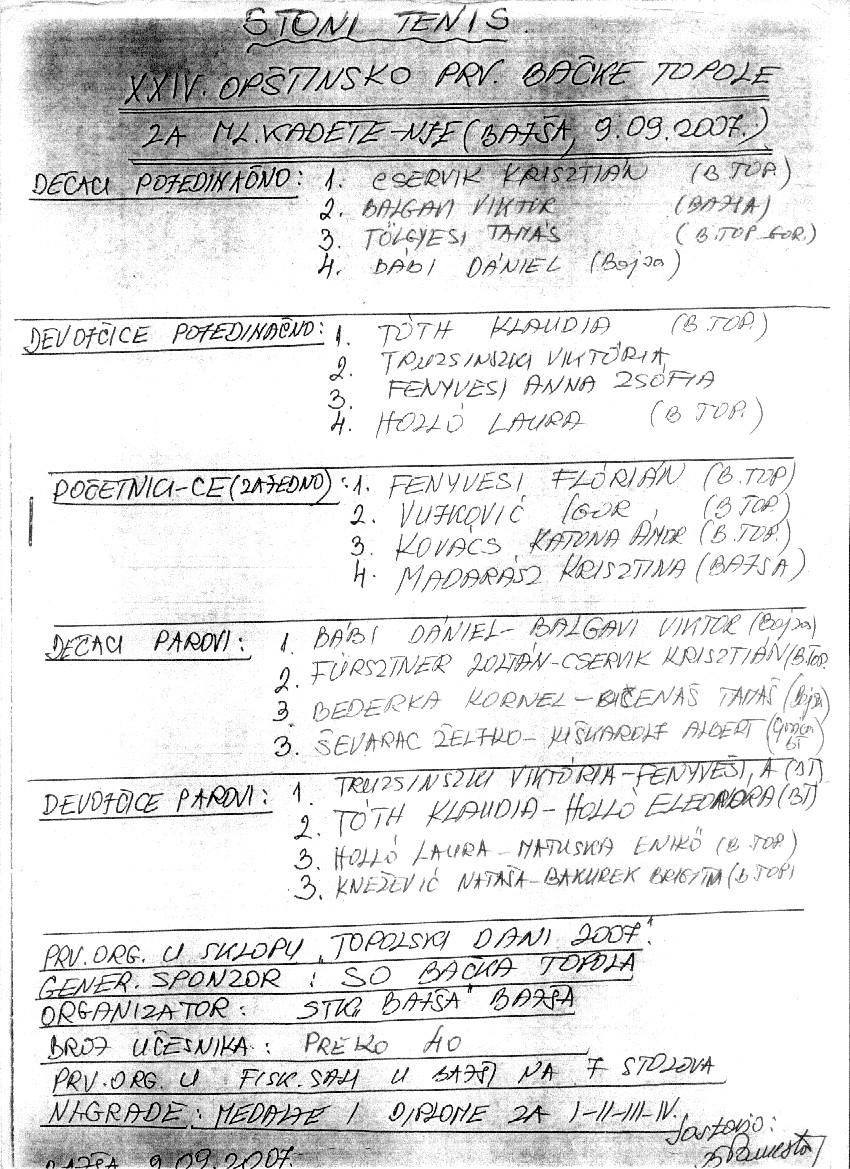 STONI TENIS
XXIV. OPŠTINSKO PRV. BAČKE TOPOLE
ZA ML. KADETE-NJE (BAJŠA, 9.09.2007.)
DEČACI POJEDINAČNO: 1. CSERVIK KRISZTIÁN (B TOP.)
2. BALGAVI VIKTOR (BAJŠA)
3. TÖLGYESI TAMÁS (B.TOP. GOR.)
4. BÁBI DÁNIEL (Bajša)
DEVOJČICE POJEDINAČNO: 1. TÓTH KLAUDIA (B.TOP.)
2. TRUZSINSZKI VIKTÓRIA
3. FENYVESI ANNA ZSÓFIA
4. HOLLÓ LAURA (B TOP.)
POČETNICI-CE (ZAJEDNO): 1. FENYVESI FLÓRIÁN (B.TOP)
2. VUJKOVIĆ IGOR (B TOP.)
3. KOVACS KATONA ÁMOR (B.TOP.)
4. MADARÁSZ KRISZTINA (BAJŠA)
DEČACI PAROVI: 1. BÁBI DÁNIEL-BALGAVI VIKTOR (Bajša)
2. FÜRSZTNER ZOLTÁN-CSERVIK KRISZTIÁN (B.TOP.
3. BEDERKA KORNEL-BIČENAŠ TAMAŠ (Bajša)
3. ŠEVARAC ŽELJKO- KIŠKAROLJ ALBERT
DEVOJČICE PAROVI: 1. TRUZSINSZKI VIKTÓRIA-FENYVESI, A (BT)
2. TÓTH KLAUDIA-HOLLÓ ELEONORA (BT)
3. HOLLÓ LAURA-MATUSKA ENIKŐ (B.TOP)
3. KNEŽEVIĆ NATAŠA-BAKUREK BRIGITA (B TOP)
PRV. ORG. U SKLOPU „TOPOLSKI DANI 2007"
GENER. SPONZOR : SO BAČKA TOPOLA
ORGANIZATOR: STK „BAJŠA" BAJŠA
BROJ UČESNIKA: PREKO 40
PRV. ORG. U FISK. SALI U BAJŠI NA 7 STOLOVA
NAGRADE: MEDALJE I DIPLOME ZA I-II-III-IV.
Sastavio:
BAJŠA 9.09.2007.